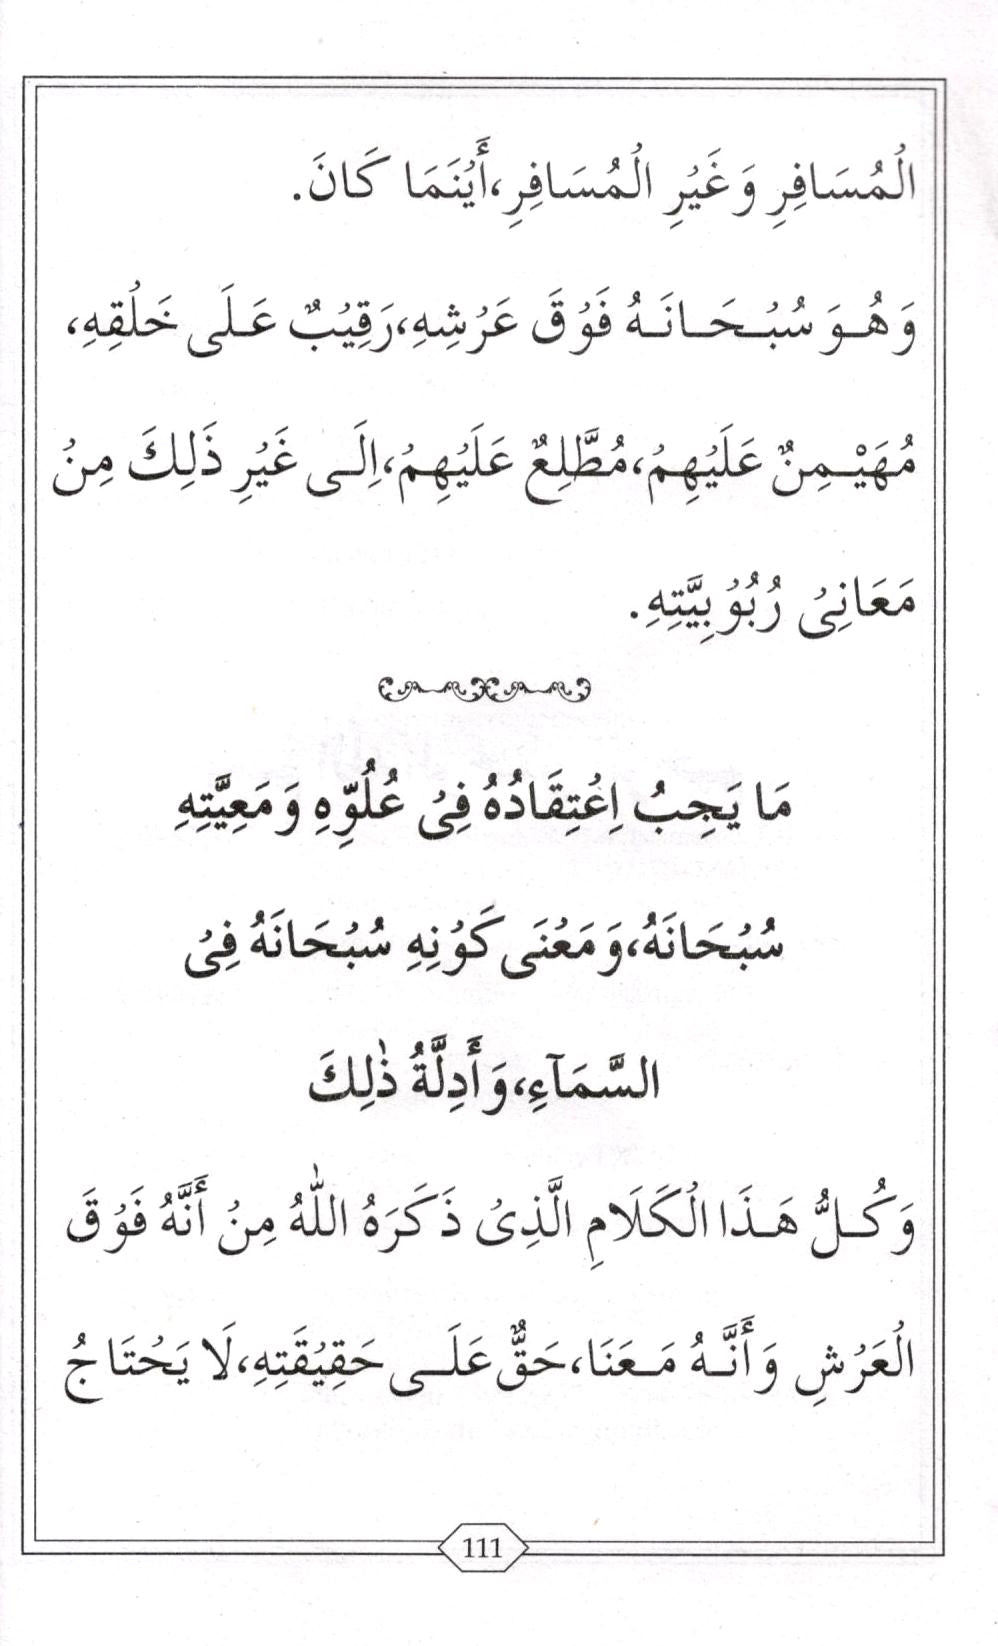 الْمُسَافِرِ وَغَيْرِ الْمُسَافِرِ،أَيْنَمَا كَانَ.
وَهُوَ سُبْحَانَهُ فَوْقَ عَرْشِهِ،رَقِيْبٌ عَلَى خَلْقِهِ،
مُهَيْمِنٌ عَلَيْهِمْ،مُطَّلِعٌ عَلَيْهِمْ،إِلَى غَيْرِ ذَلِكَ مِنْ
مَعَانِيْ رُبُوْبِيَّتِهِ.
مَا يَجِبُ اِعْتِقَادُهُ فِيْ عُلُوِّهِ وَمَعِيَّتِهِ
سُبْحَانَهُ،وَمَعْنَى كَوْنِهِ سُبْحَانَهُ فِيْ
السَّمَآءِ،وَأَدِلَّةُ ذٰلِكَ
وَكُلُّ هَذَا الْكَلَامِ الَّذِيْ ذَكَرَهُ اللّٰهُ مِنْ أَنَّهُ فَوْقَ
الْعَرْشِ وَأَنَّهُ مَعَنَا،حَقٌّ عَلَى حَقِيْقَتِهِ،لَا يَحْتَاجُ
111